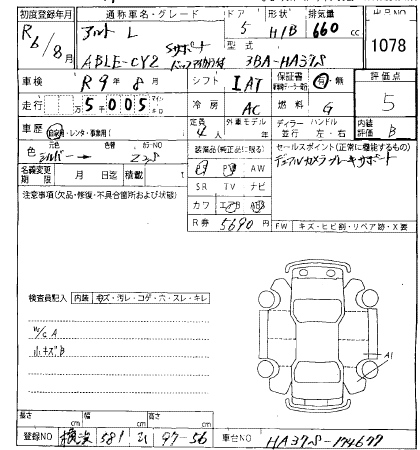 初度登録年月 通称車名・グレード ドア 形状 排気量 出品NO
R6/8月 アルト L 5 H/B 660 cc 1078
ABLE-CYZ Sサポート 型式 3BA-HA37S
車検 R9年8月 シフト IAT 保証書 有・無 評価点
走行 5万5005 冷房 AC 燃料 G 5
車歴 自家用・レンタ・事業用 定員 4人 外車モデル 年 ディーラー 並行 ハンドル 左・右 内装評価 B
色 元色 シルバー 色替 カラーNO Z2S 装備品(純正品に限る) セールスポイント(正常に機能するもの)
デュアルカメラブレーキサポート
名義変更期限 月 日迄 積載 t PS PW AW
注意事項(欠品・修復・不具合箇所および状態) SR TV ナビ
カワ エアB ABS
R券 5690円 FW キズ・ヒビ割・リペア跡・X要
検査員記入 内装 キズ・汚レ・コゲ・穴・スレ・キレ
W/C A
小キズB
A1
長さ cm 幅 cm 高さ cm
登録NO 横浜 581 ム 97-56 車台NO HA37S-174677